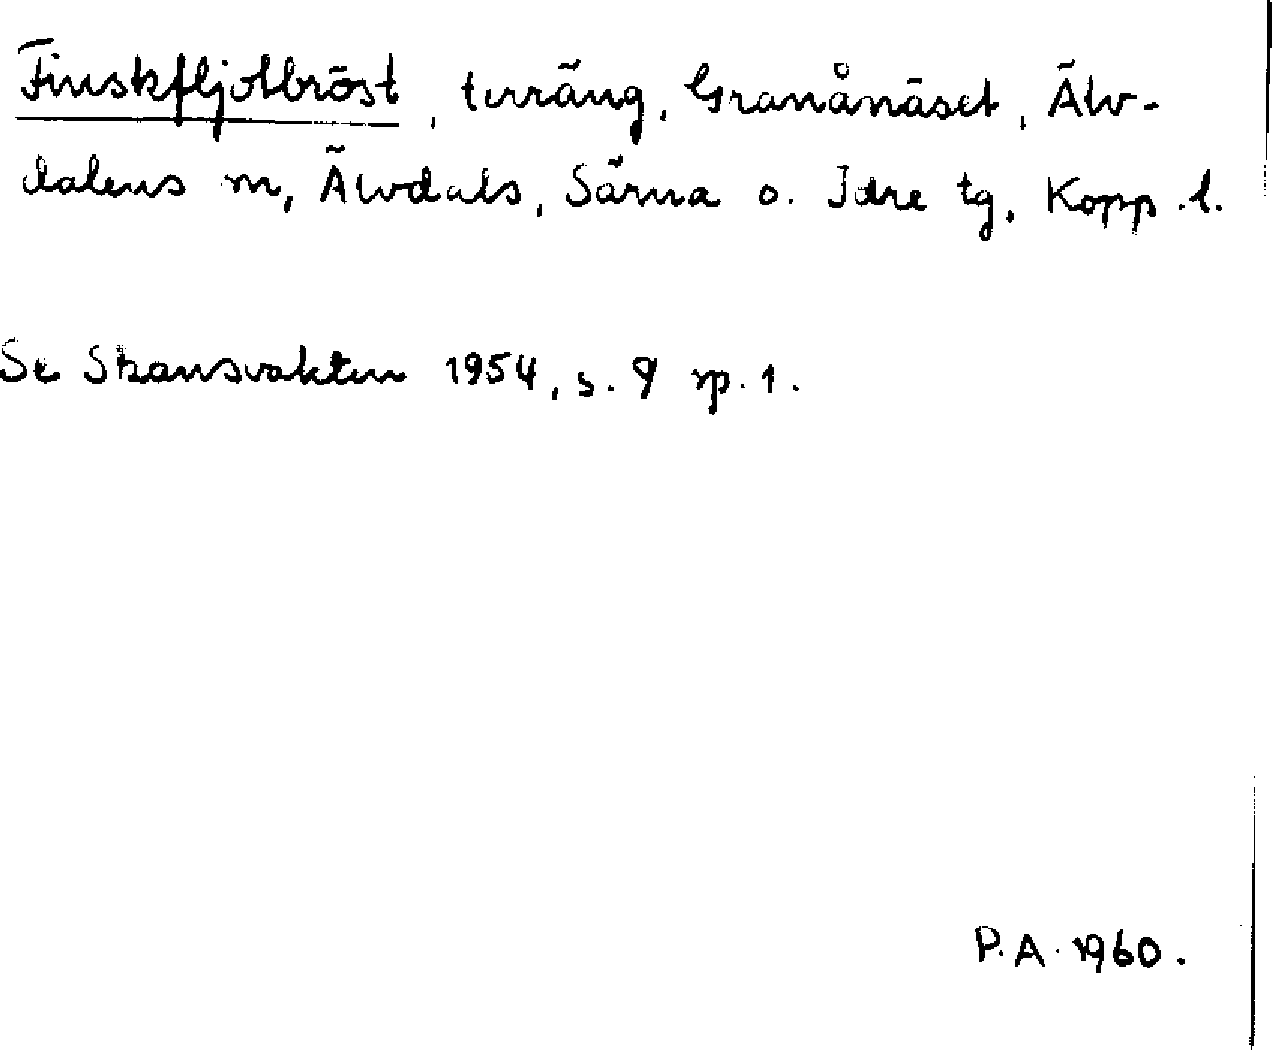 Finskfljotbröst, terräng, Granånäset, Älv-
dalens m, Älvdals, Särna o. Idre tg, Kopp.l.
Se Skansvakten 1954, s. 9 sp. 1.
P.A. 1960.